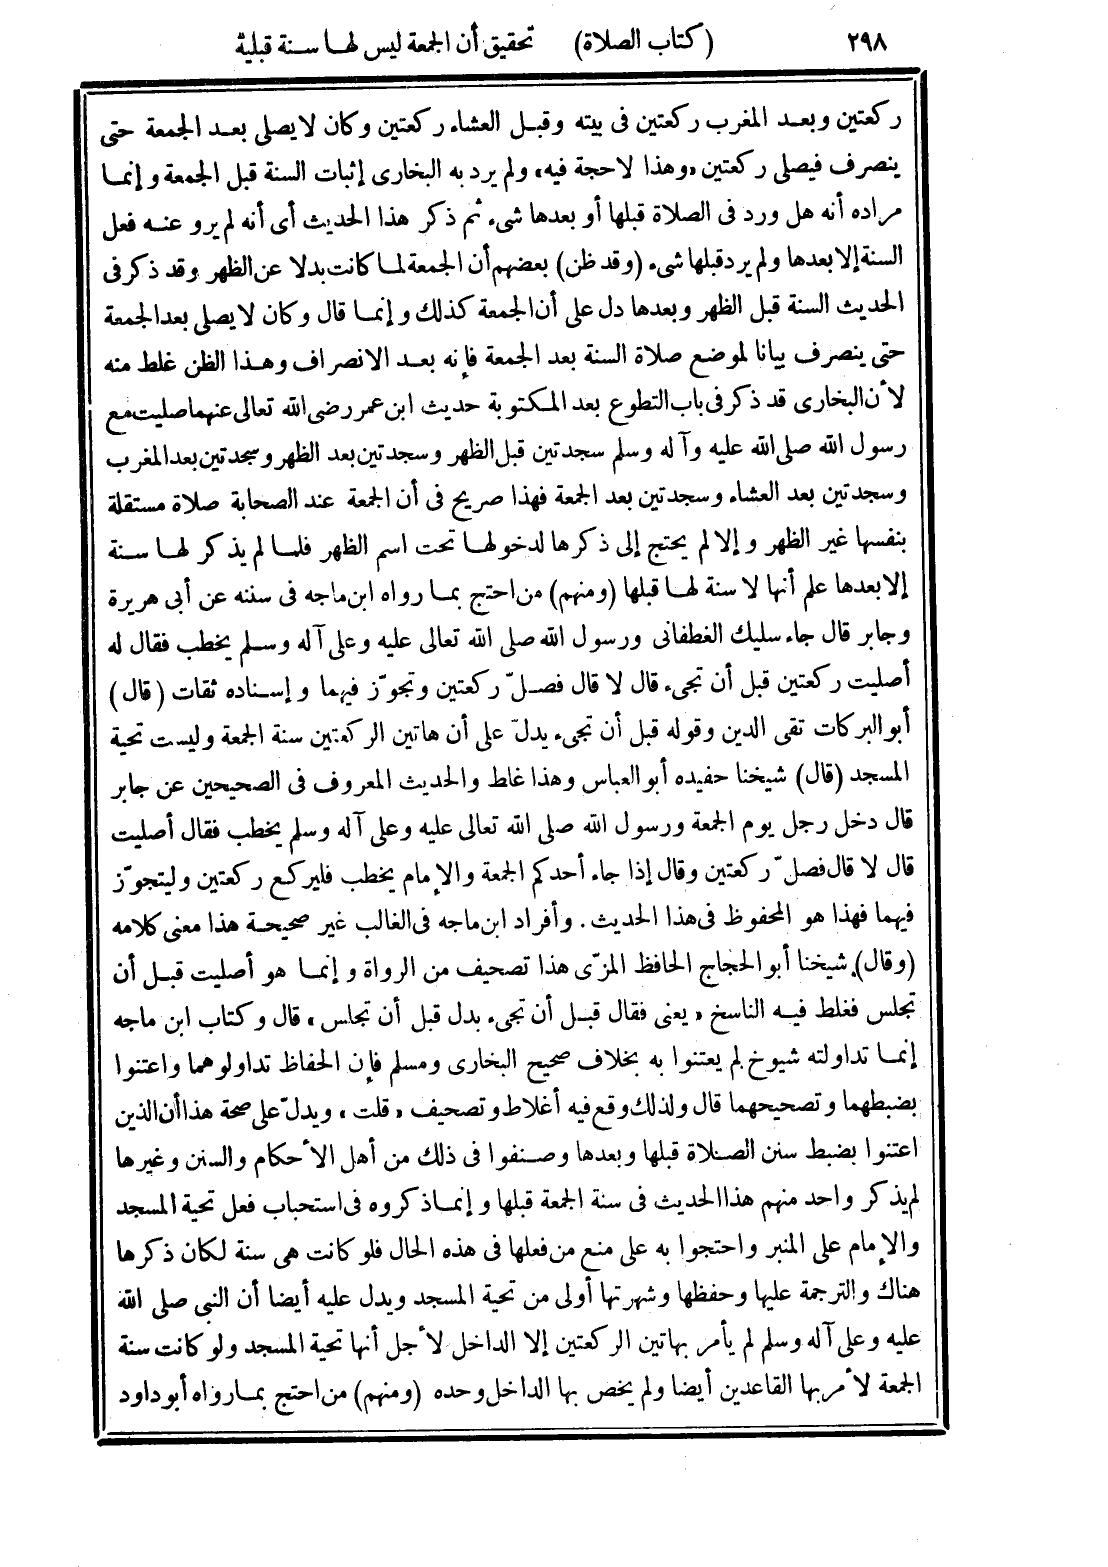 ٢٩٨ (كتاب الصلاة) تحقيق أن الجمعة ليس لهـا سـنة قبلية
ركعتين وبعـد المغرب ركعتين فى بيته وقبـل العشاء ركعتين وكان لايصلى بعـد الجمعة حتى
ينصرف فيصلى ركعتين «وهذا لاحجة فيه» ولم يرد به البخارى إثبات السنة قبل الجمعة وإنمـا
مراده أنه هل ورد فى الصلاة قبلها أو بعدها شىء ثم ذكر هذا الحديث أى أنه لم يرو عنـه فعل
السنة إلا بعدها ولم يرد قبلها شىء (وقد ظن) بعضهم أن الجمعة لمـا كانت بدلا عن الظهر وقد ذكر فى
الحديث السنة قبل الظهر وبعدها دل على أن الجمعة كذلك وإنمـا قال وكان لايصلى بعد الجمعة
حتى ينصرف بيانا لموضع صلاة السنة بعد الجمعة فإنه بعـد الانصراف وهـذا الظن غلط منه
لأن البخارى قد ذكر فى باب التطوع بعد المكتوبة حديث ابن عمر رضى الله تعالى عنهما صليت مع
رسول الله صلى الله عليه وآله وسلم سجدتين قبل الظهر وسجدتين بعد الظهر وسجدتين بعد المغرب
وسجدتين بعد العشاء وسجدتين بعد الجمعة فهذا صريح فى أن الجمعة عند الصحابة صلاة مستقلة
بنفسها غير الظهر وإلا لم يحتج إلى ذكرها لدخولهـا تحت اسم الظهر فلمـا لم يذكر لهـا سـنة
إلا بعدها علم أنها لا سنة لهـا قبلها (ومنهم) من احتج بمـا رواه ابن ماجه فى سننه عن أبى هريرة
وجابر قال جاء سليك الغطفانى ورسول الله صلى الله تعالى عليه وعلى آله وسـلم يخطب فقال له
أصليت ركعتين قبل أن تجىء قال لا قال فصلّ ركعتين وتجوّز فيهما وإسـناده ثقات (قال)
أبو البركات تقى الدين وقوله قبل أن تجىء يدلّ على أن هاتين الركعتين سنة الجمعة وليست تحية
المسجد (قال) شيخنا حفيده أبو العباس وهذا غلط والحديث المعروف فى الصحيحين عن جابر
قال دخل رجل يوم الجمعة ورسول الله صلى الله تعالى عليه وعلى آله وسلم يخطب فقال أصليت
قال لا قال فصلّ ركعتين وقال إذا جاء أحدكم الجمعة والإمام يخطب فليركع ركعتين وليتجوّز
فيهما فهذا هو المحفوظ فى هذا الحديث. وأفراد ابن ماجه فى الغالب غير صحيحـة هذا معنى كلامه
(وقال) شيخنا أبو الحجاج الحافظ المزّى هذا تصحيف من الرواة وإنمـا هو أصليت قبـل أن
تجلس فغلط فيـه الناسخ «يعنى فقال قبـل أن تجىء بدل قبل أن تجلس» قال وكتاب ابن ماجه
إنمـا تداولته شيوخ لم يعتنوا به بخلاف صحيح البخارى ومسلم فإن الحفاظ تداولوهما واعتنوا
بضبطهما وتصحيحهما قال ولذلك وقع فيه أغلاط وتصحيف «قلت» ويدلّ على صحة هذا أن الذين
اعتنوا بضبط سنن الصـلاة قبلها وبعدها وصـنفوا فى ذلك من أهل الأحكام والسنن وغيرها
لم يذكر واحد منهم هذا الحديث فى سنة الجمعة قبلها وإنمـا ذكروه فى استحباب فعل تحية المسجد
والإمام على المنبر واحتجوا به على منع من فعلها فى هذه الحال فلو كانت هى سنة لكان ذكرها
هناك والترجمة عليها وحفظها وشهرتها أولى من تحية المسجد ويدل عليه أيضا أن النبى صلى الله
عليه وعلى آله وسلم لم يأمر بهاتين الركعتين إلا الداخل لأجل أنها تحية المسجد ولو كانت سنة
الجمعة لأمر بها القاعدين أيضا ولم يخص بها الداخل وحده (ومنهم) من احتج بمـا رواه أبو داود